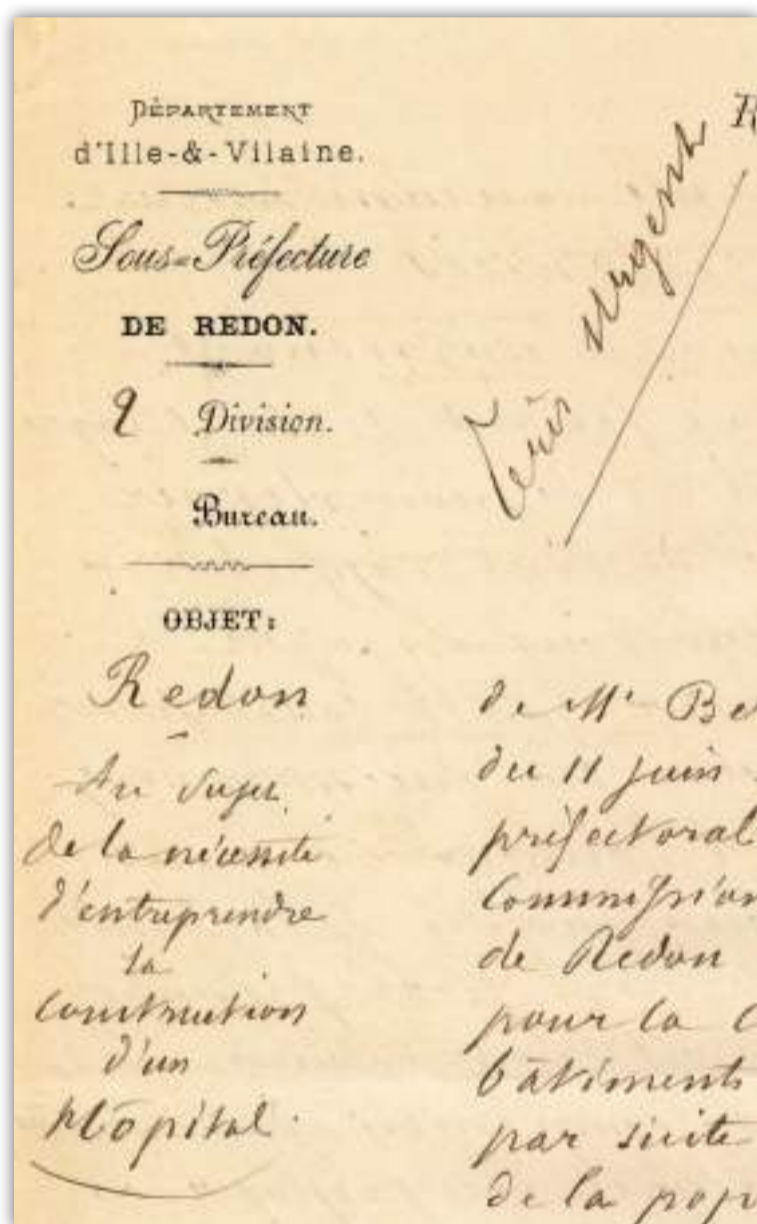 DÉPARTEMENT
d'Ille-&-Vilaine.
Sous-Préfecture
DE REDON.
2 Division.
Bureau.
OBJET:
Redon
Au sujet
de la nécessité
d'entreprendre
la
construction
d'un
Hôpital.
Très urgent
R
de Mr Be
du 11 juin
préfectoral
Commission
de Redon
pour la C
bâtiments
par suite
de la pop